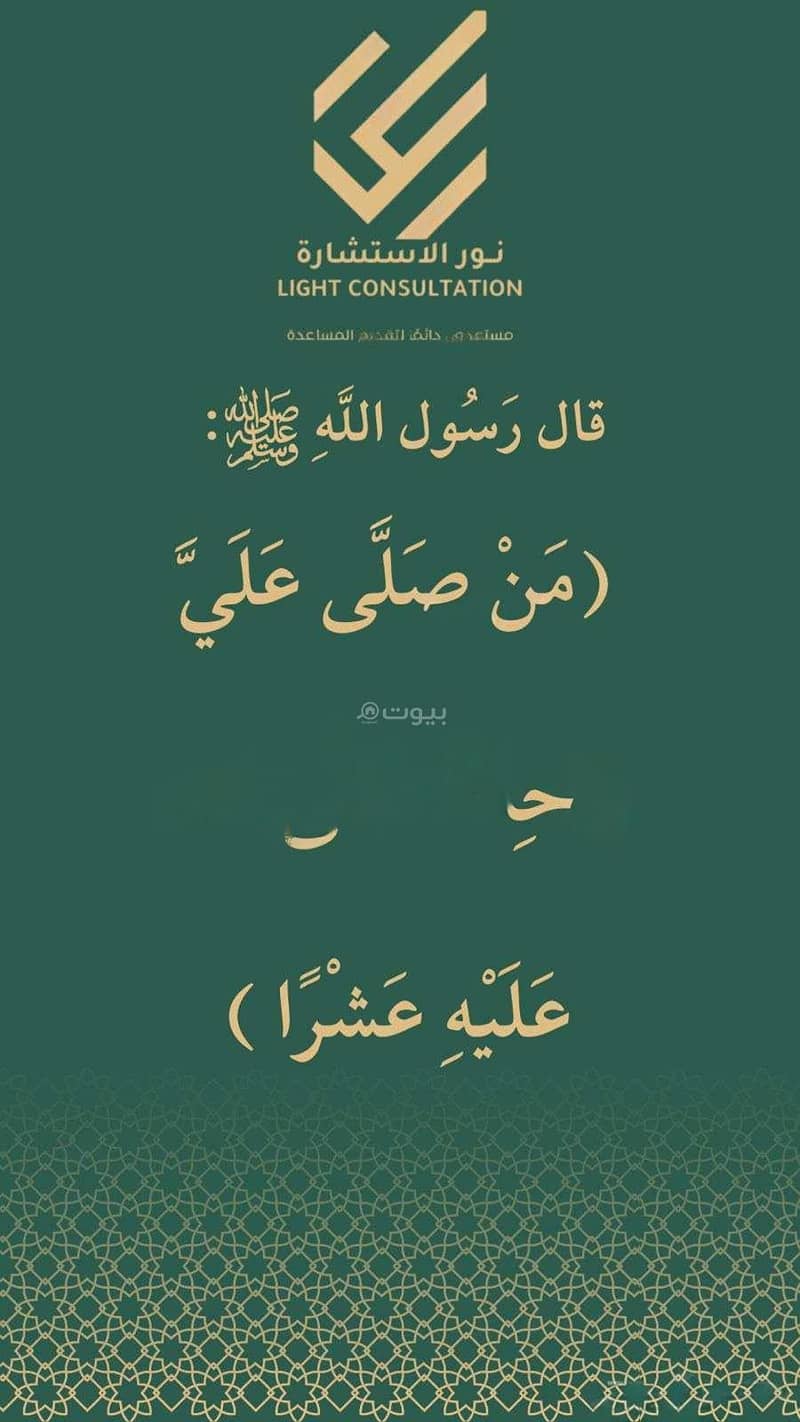 نور الاستشارة
LIGHT CONSULTATION
مستعدون دائمًا لتقديم المساعدة
قال رَسُول اللَّهِ ﷺ:
(مَنْ صَلَّى عَلَيَّ
بيوت
عَلَيْهِ عَشْرًا )